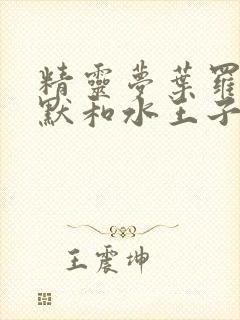 精靈夢葉羅
默和水王子
王震坤